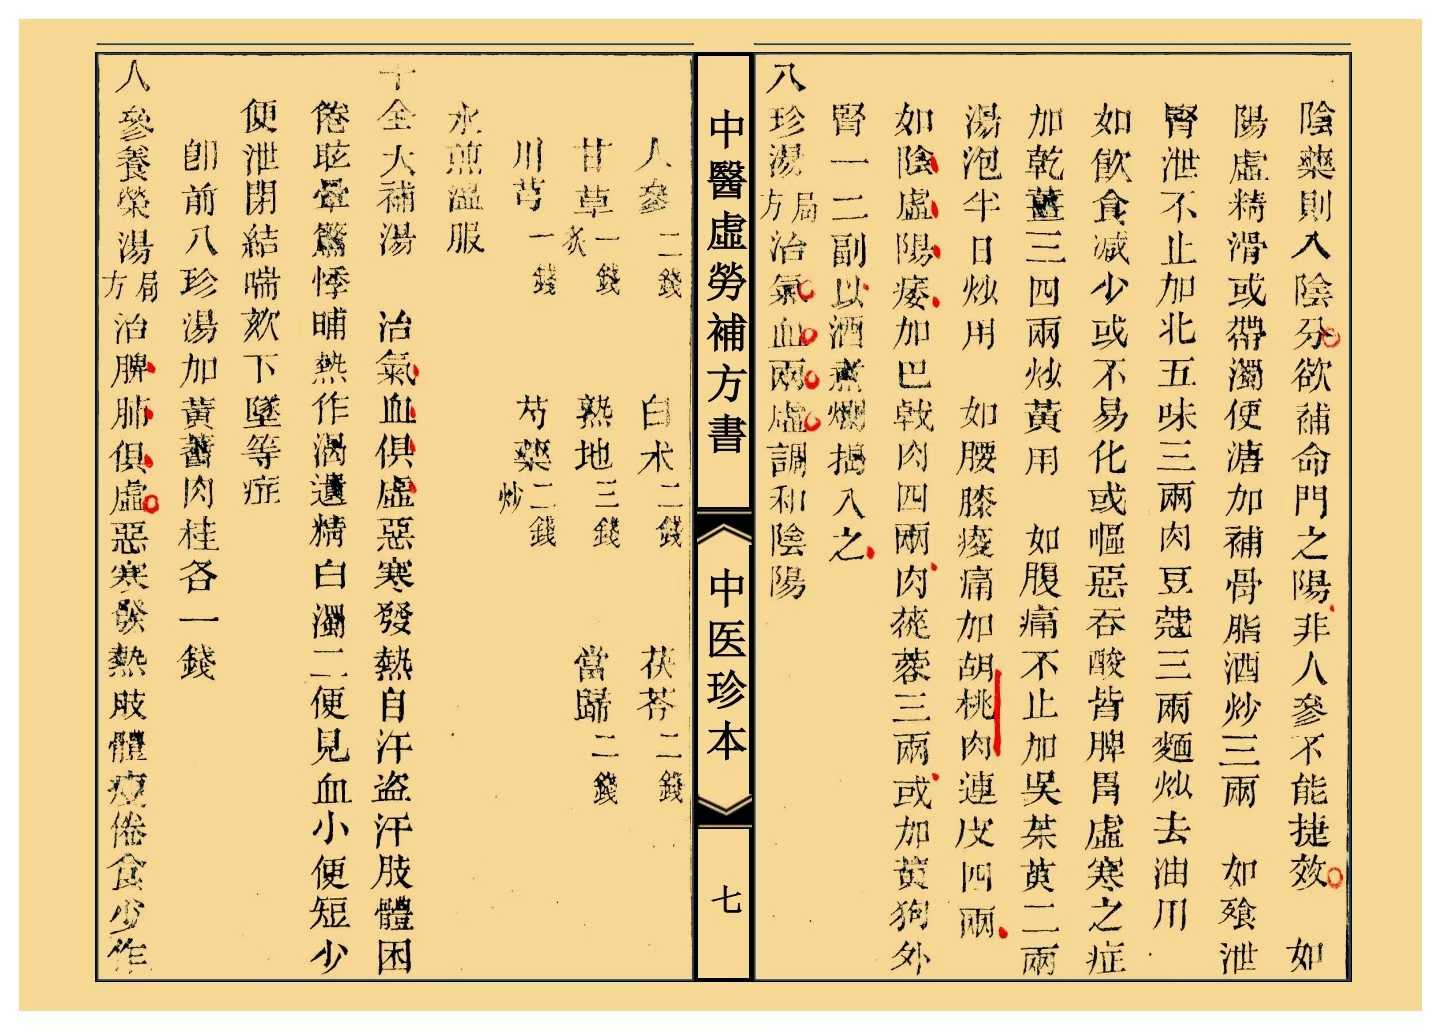 陰藥則入陰分欲補命門之陽非人參不能捷效　如
陽虛精滑或帶濁便溏加補骨脂酒炒三兩　如飱泄
腎泄不止加北五味三兩肉豆蔻三兩麵炒去油用
如飲食減少或不易化或嘔惡吞酸皆脾胃虛寒之症
加乾薑三四兩炒黃用　如腹痛不止加吳茱萸二兩
湯泡半日炒用　如腰膝痠痛加胡桃肉連皮四兩
如陰虛陽痿加巴戟肉四兩肉蓯蓉三兩或加黃狗外
腎一二副以酒煮爛搗入之
八珍湯局方治氣血兩虛調和陰陽
中醫虛勞補方書
中医珍本
七
人參二錢　白术二錢　茯苓二錢
甘草炙一錢　熟地三錢　當歸二錢
川芎一錢　芍藥炒二錢
水煎溫服
十全大補湯　治氣血俱虛惡寒發熱自汗盜汗肢體困
倦眩暈驚悸晡熱作渴遺精白濁二便見血小便短少
便泄閉結喘欬下墜等症
卽前八珍湯加黃蓍肉桂各一錢
人參養榮湯局方治脾肺俱虛惡寒發熱肢體瘦倦食少作